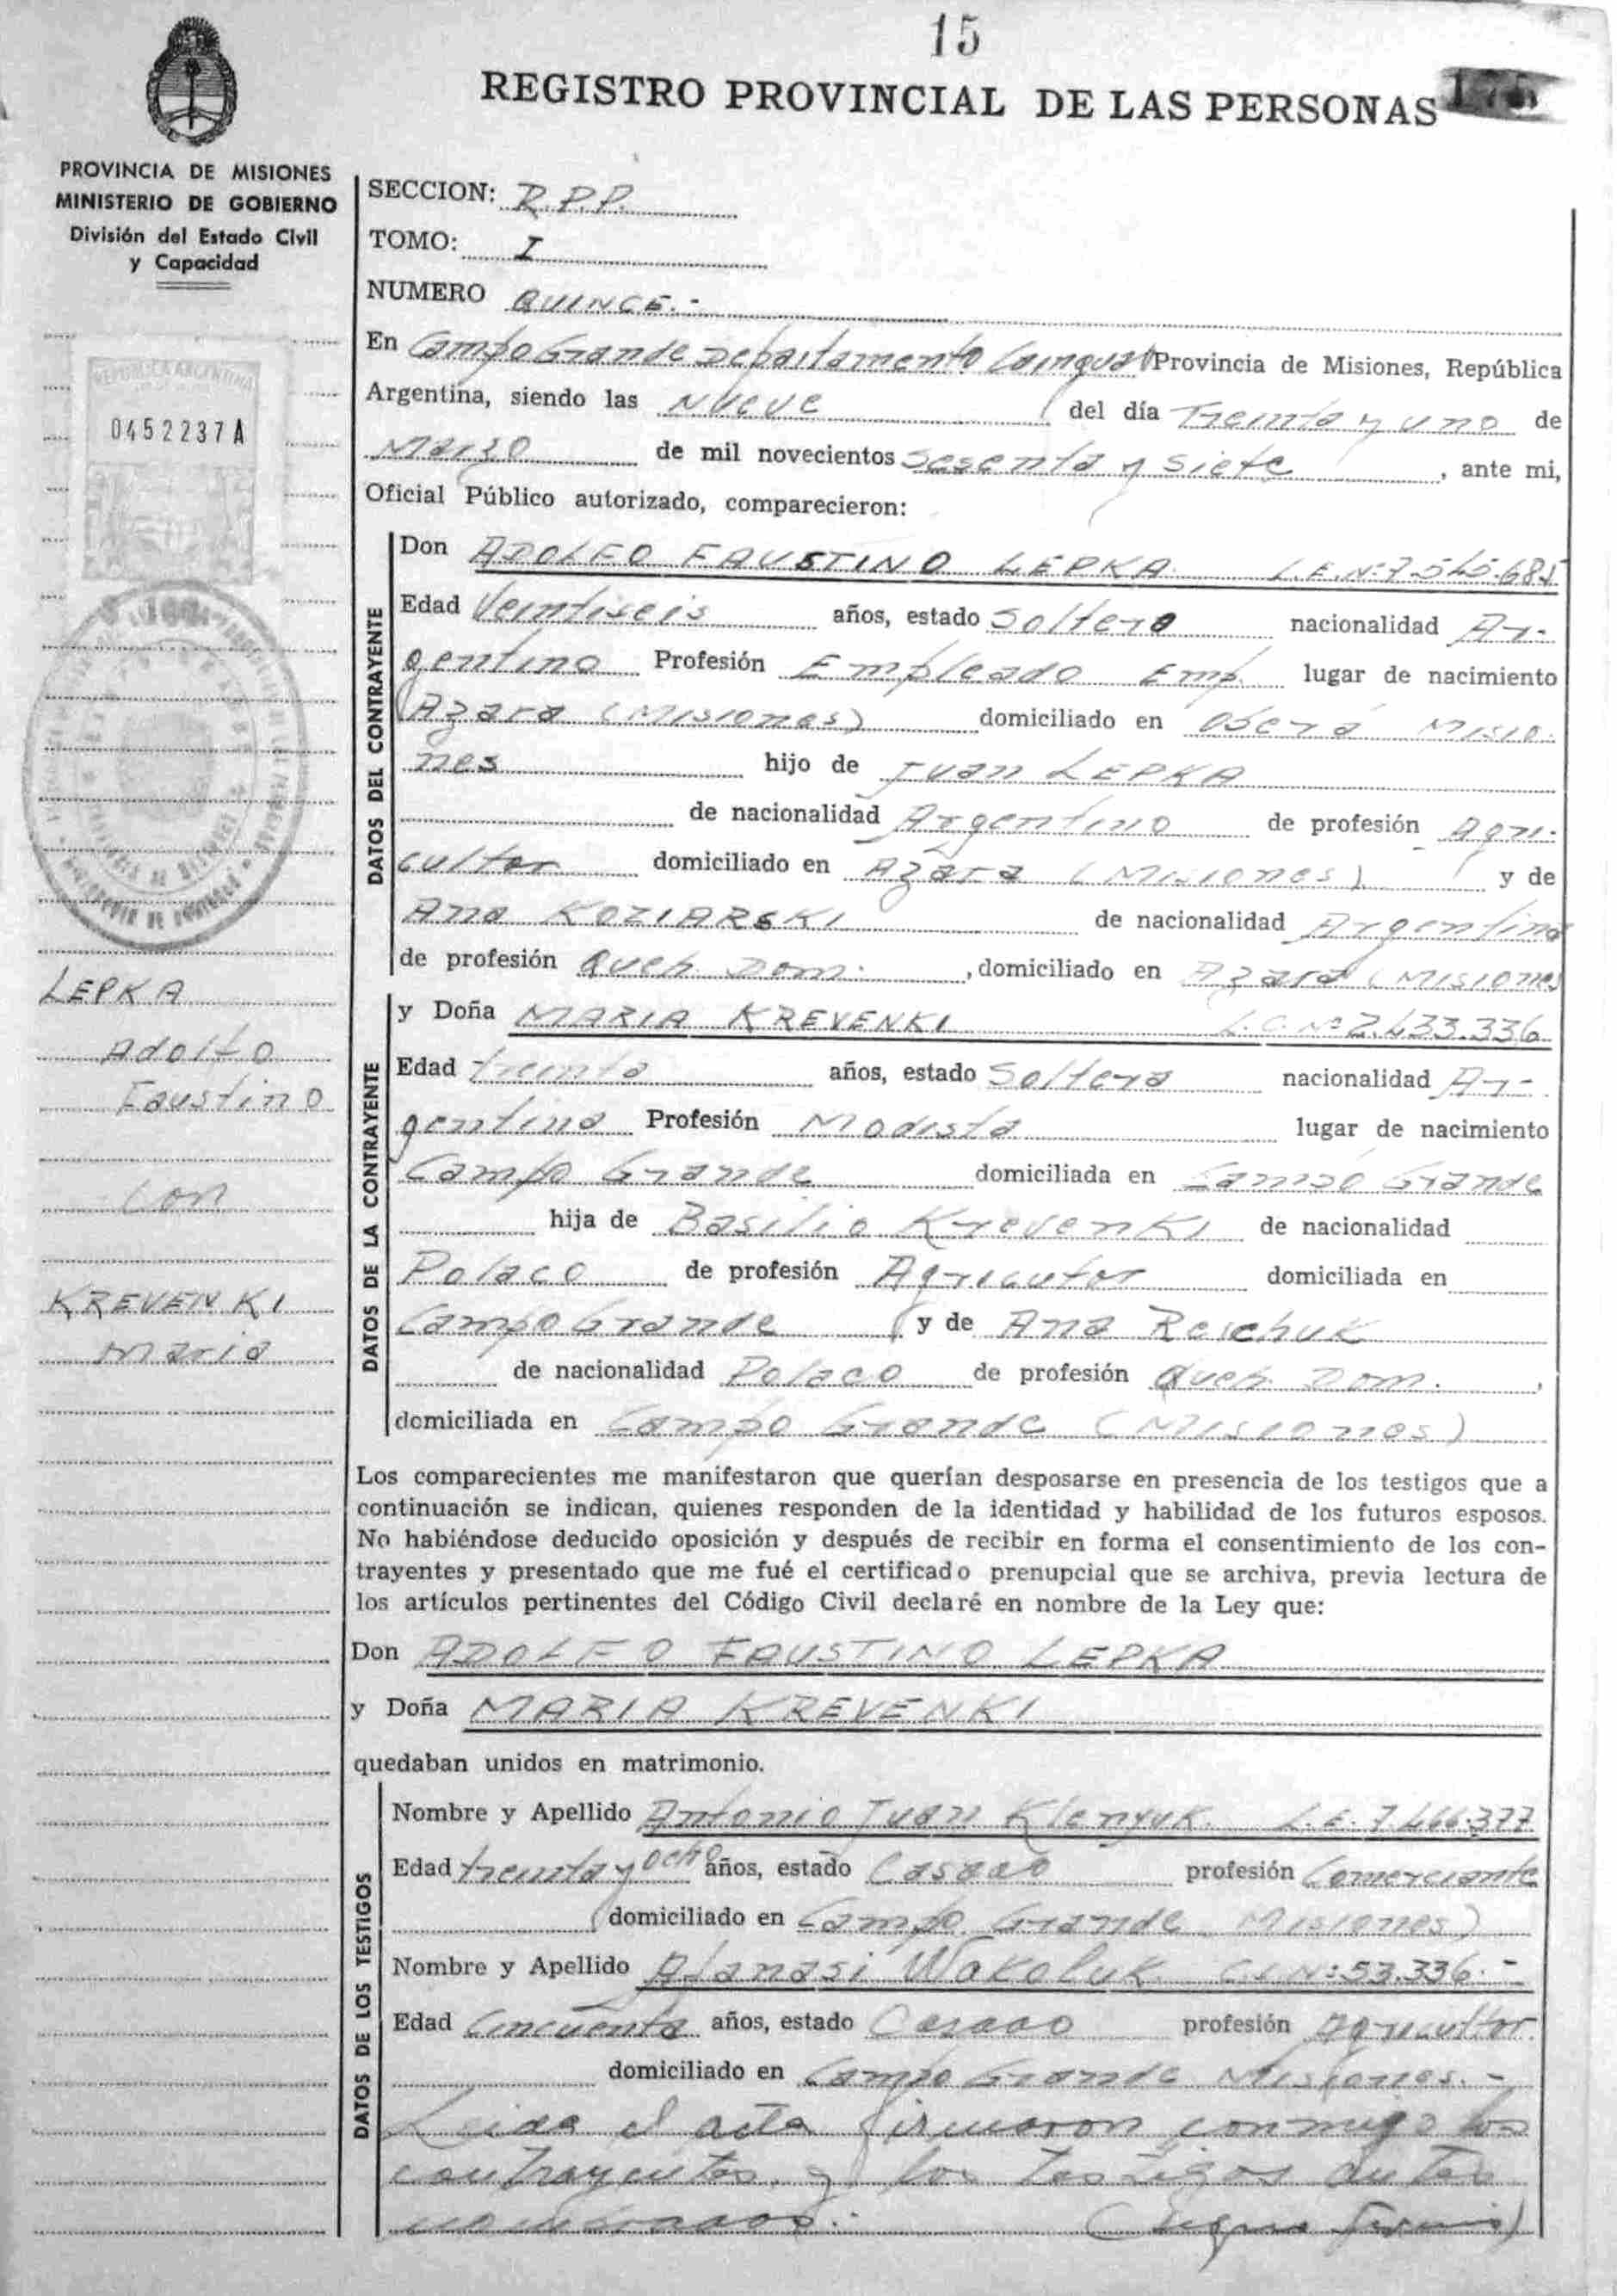 15
REGISTRO PROVINCIAL DE LAS PERSONAS
PROVINCIA DE MISIONES
MINISTERIO DE GOBIERNO
División del Estado Civil
y Capacidad
REPUBLICA ARGENTINA
0452237A
LEPKA
Adolfo
Faustino
con
KREVENKI
Maria
SECCION: R.P.P.
TOMO: I
NUMERO QUINCE.-
En Campo Grande Departamento Cainguas Provincia de Misiones, República
Argentina, siendo las Nueve del día Treinta y uno de
Marzo de mil novecientos sesenta y siete, ante mi,
Oficial Público autorizado, comparecieron:
DATOS DEL CONTRAYENTE
Don ADOLFO FAUSTINO LEPKA L.E.Nº 7.545.685
Edad Veintiseis años, estado Soltero nacionalidad Ar-
gentino Profesión Empleado Emp. lugar de nacimiento
Azara (Misiones) domiciliado en Oberá Misio-
nes hijo de Juan LEPKA
de nacionalidad Argentino de profesión Agri-
cultor domiciliado en Azara (Misiones) y de
Ana KOZIARSKI de nacionalidad Argentina
de profesión Queh. Dom. , domiciliado en Azara (Misiones
DATOS DE LA CONTRAYENTE
y Doña MARIA KREVENKI L.C.Nº 2.433.336
Edad treinta años, estado Soltera nacionalidad Ar-
gentina Profesión Modista lugar de nacimiento
Campo Grande domiciliada en Campo Grande
hija de Basilio Krevenki de nacionalidad
Polaco de profesión Agricutor domiciliada en
Campo Grande y de Ana Reschuk
de nacionalidad Polaco de profesión Queh. Dom. ,
domiciliada en Campo Grande (Misiones)
Los comparecientes me manifestaron que querían desposarse en presencia de los testigos que a
continuación se indican, quienes responden de la identidad y habilidad de los futuros esposos.
No habiéndose deducido oposición y después de recibir en forma el consentimiento de los con-
trayentes y presentado que me fué el certificado prenupcial que se archiva, previa lectura de
los artículos pertinentes del Código Civil declaré en nombre de la Ley que:
Don ADOLFO FAUSTINO LEPKA
y Doña MARIA KREVENKI
quedaban unidos en matrimonio.
DATOS DE LOS TESTIGOS
Nombre y Apellido Antonio Juan Klenyuk L.E. 7.466.377
Edad treinta y ocho años, estado Casado profesión Comerciante
domiciliado en Campo Grande Misiones)
Nombre y Apellido Afanasi Wakoluk C.I.Nº: 53.336.-
Edad Cincuenta años, estado Casado profesión Agricultor.
domiciliado en Campo Grande Misiones.-
Leida el acta firmaron conmigo los
contrayentes y los testigos antes
nombrados.-